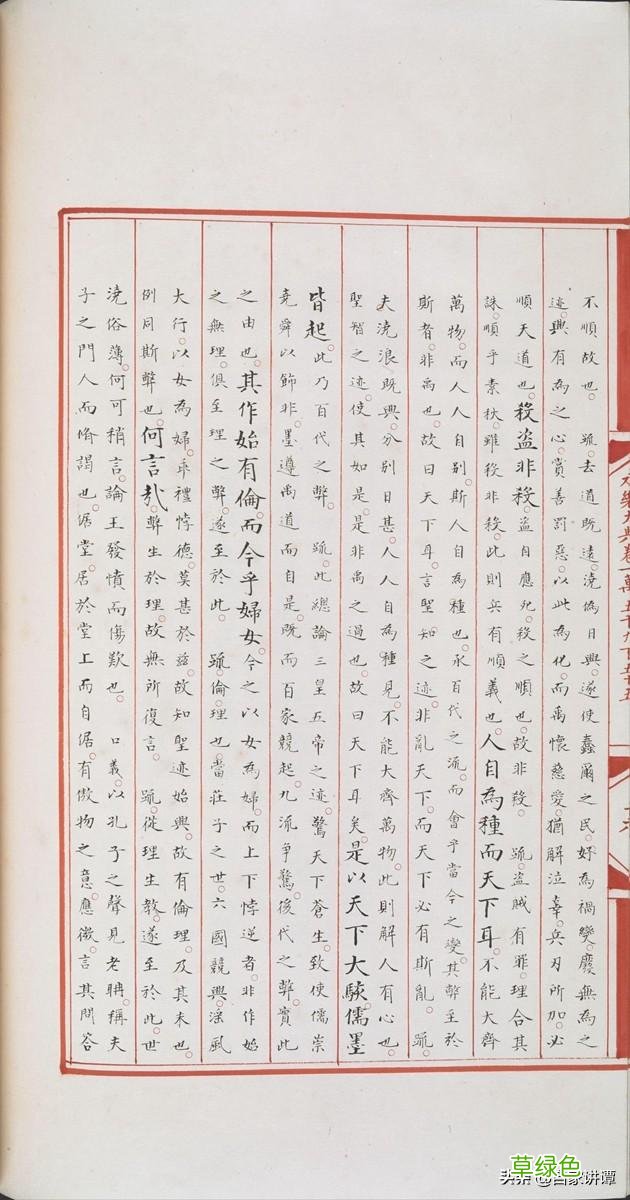 永樂大典卷一萬
不順故也 疏去道既遠澆偽日興遂使蠢爾之民好為禍變廢無為之
迹興有為之心賞善罰惡以此為化而禹懷慈愛猶解泣辜兵刃所加必
順天道也殺盜非殺盜自應死殺之順也故非殺 疏盜賊有罪理合其
誅順乎素秋雖殺非殺此則兵有順義也人自為種而天下耳不能大齊
萬物而人人自別斯人自為種也承百代之流而會乎當今之變其弊至於
斯者非禹也故曰天下耳言聖知之迹非亂天下而天下必有斯亂 疏
夫澆浪既興分別日甚人人自為種見不能大齊萬物此則解人有心也
聖智之迹使其如是是非禹之過也故曰天下耳矣是以天下大駭儒墨
皆起此乃百代之弊 疏此總論三皇五帝之迹驚天下蒼生致使儒崇
堯舜以飾非墨遵禹道而自是既而百家競起九流爭騖後代之弊實此
之由也其作始有倫而今乎婦女今之以女為婦而上下悖逆者非作始
之無理俱至理之弊遂至於此 疏倫理也當莊子之世六國競興淫風
大行以女為婦乖禮悖德莫甚於茲故知聖迹始興故有倫理及其末也
例同斯弊也何言哉弊生於理故無所復言 疏從理生教遂至於此世
澆俗薄何可稍言論王發憤而傷歎也 口義以孔子之聲見老聃稱夫
子之門人而脩謁也倨堂居於堂上而自倨有傲物之意應微言其問答
草绿色
头条 @百家讲谭